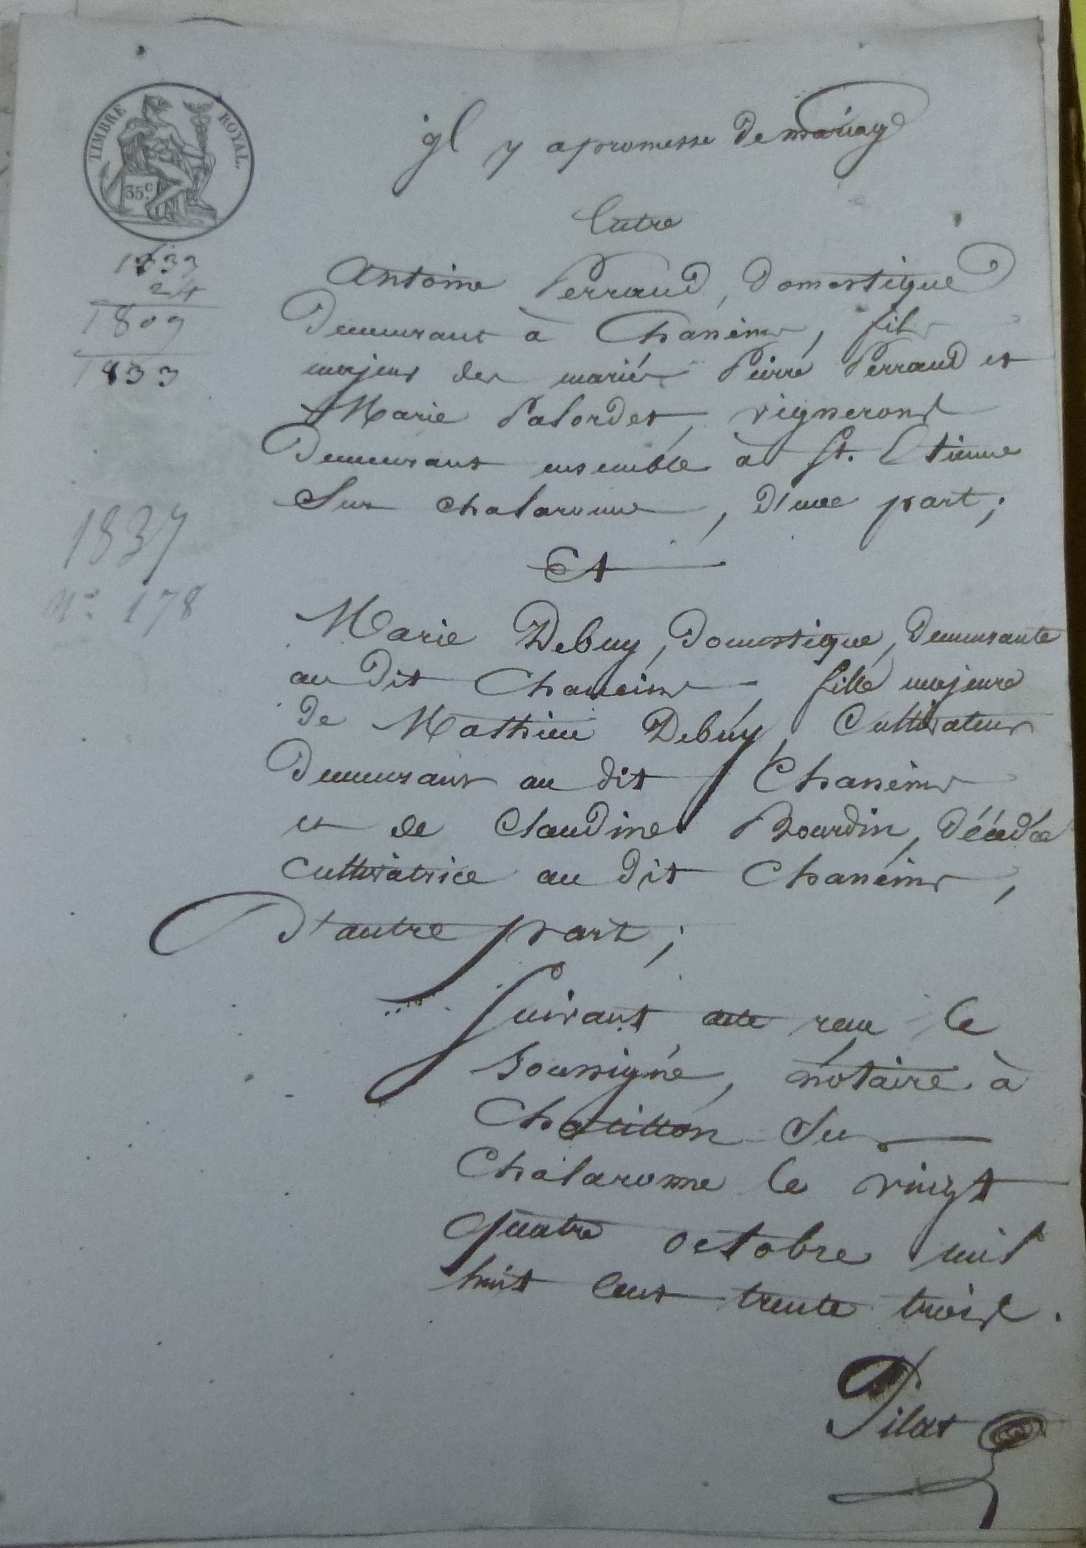 TIMBRE ROYAL.
35c.
il y a promesse de mariage
Entre
1833
24
1809
1833
Antoine Perraud, domestique
demeurant à Chaneins, fils
majeur des mariés Pierre Perraud et
Marie Palordet, vignerons
demeurant ensemble à St. Etienne
sur chalaronne, d'une part;
Et
1837
No. 178
Marie Debuy, domestique, demeurante
au dit Chaneins fille majeure
de Mathieu Debuy, Cultivateur
demeurant au dit Chaneins
et de Claudine Bourdin, décédée
cultivatrice au dit Chaneins,
d'autre part;
Suivant acte reçu le
soussigné, notaire à
Chatillon sur
Chalaronne le vingt
quatre octobre mil
huit cent trente trois.
Pilat